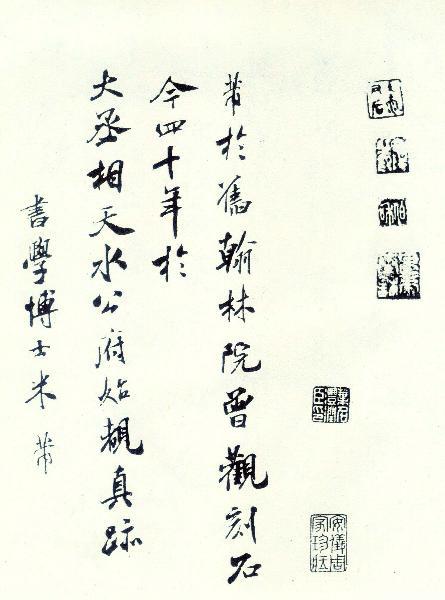 芾於舊翰林院曾觀刻石
今四十年於
大丞相天水公府始覩真跡
書學博士米芾
安儀周家珍藏